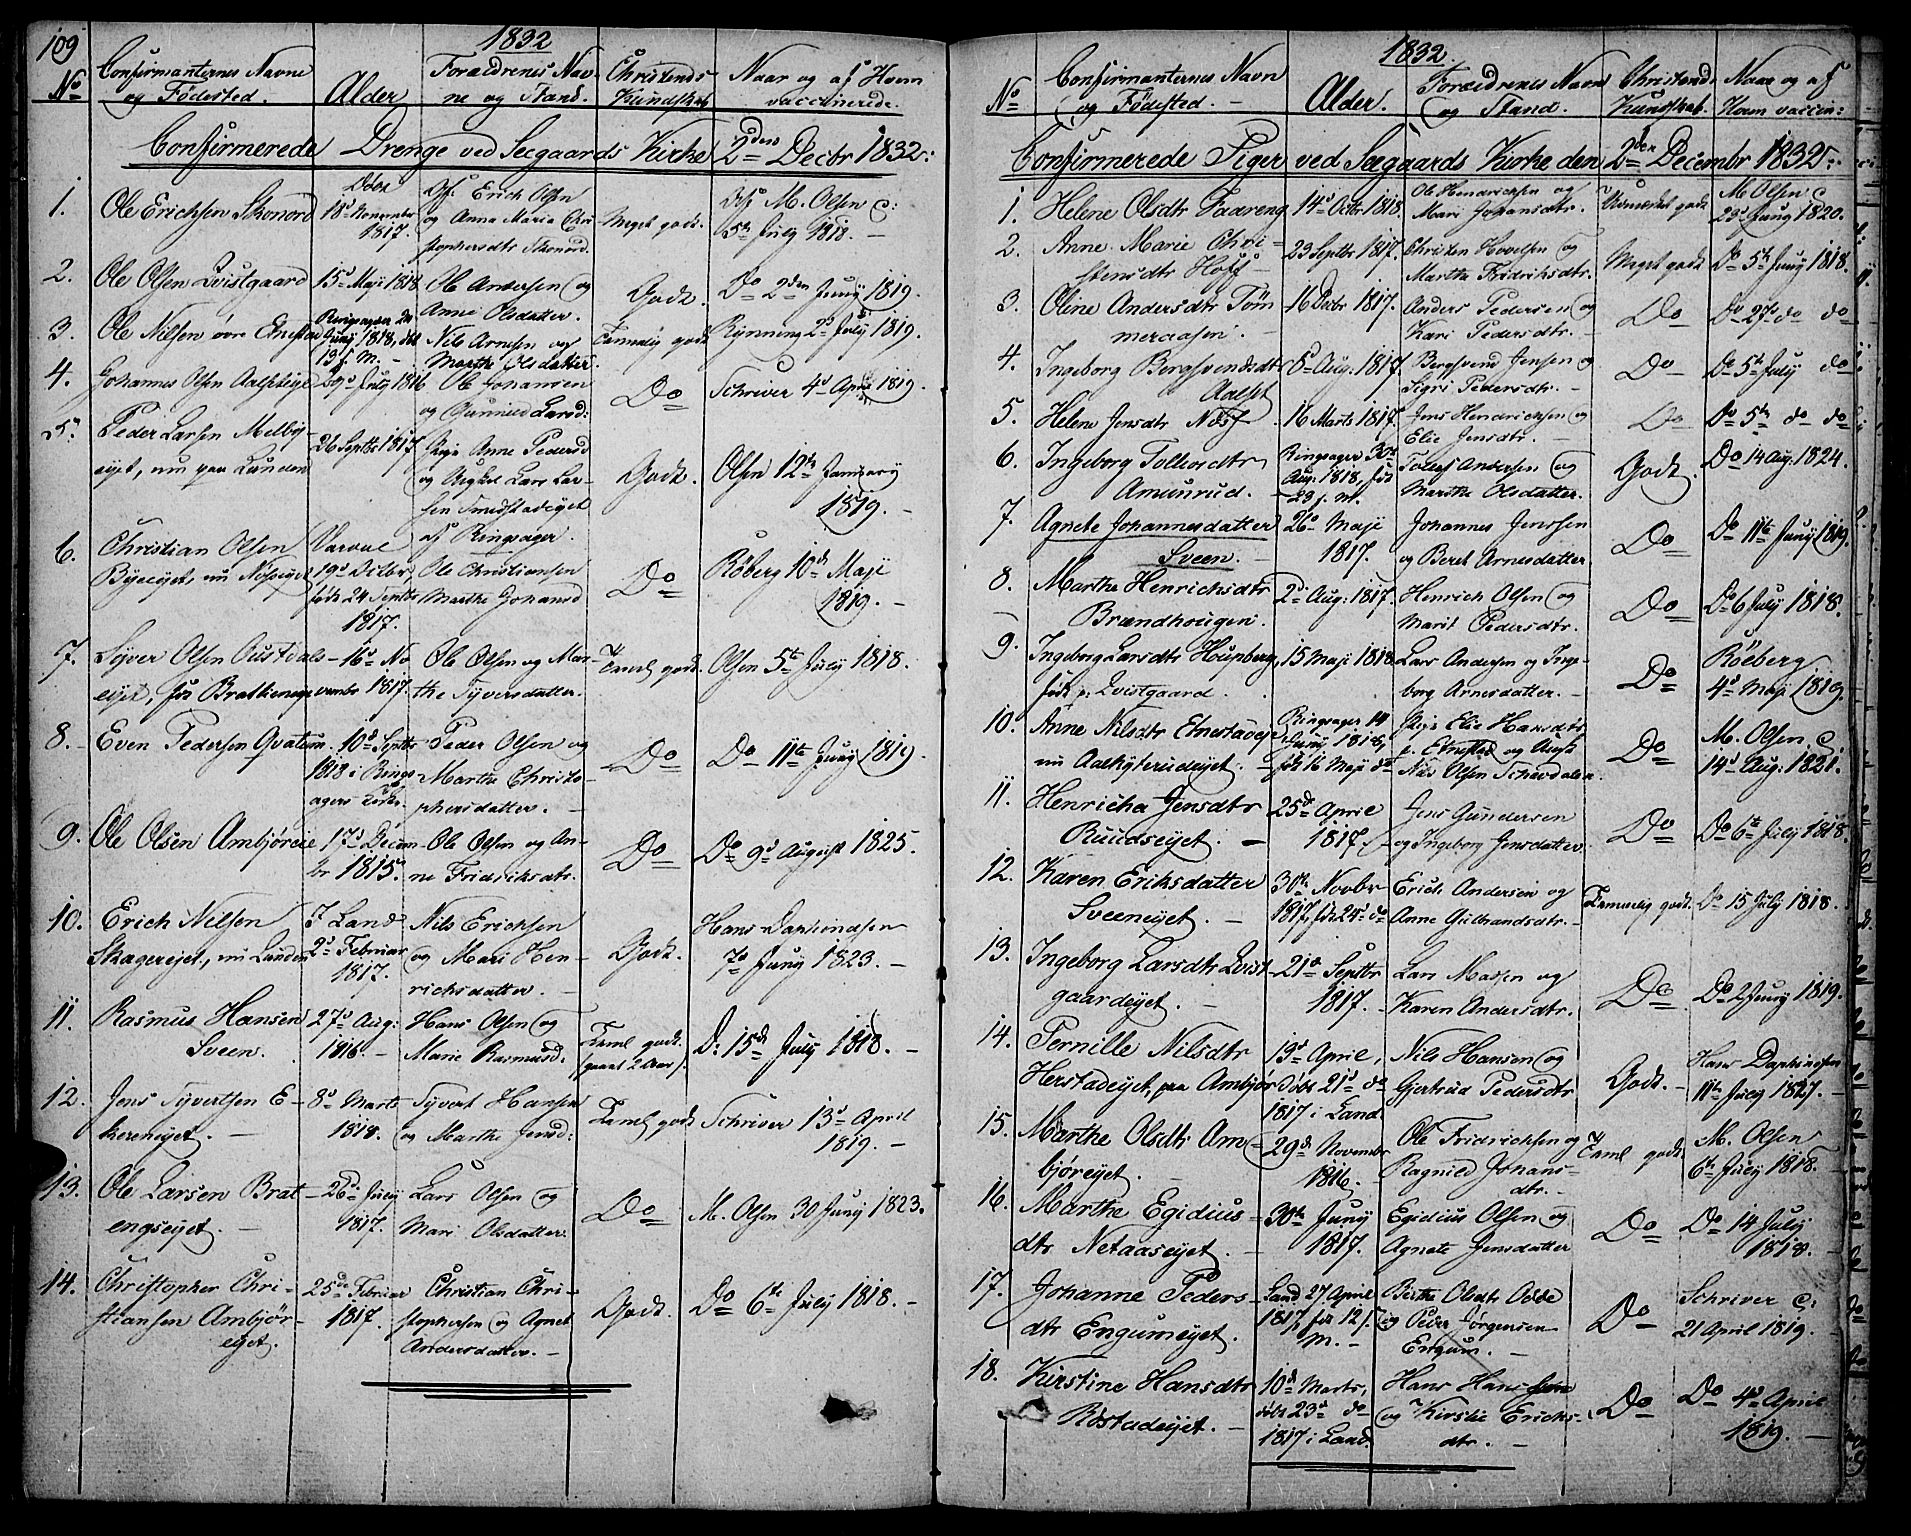 109
1832
No
Confirmanternes Navne
og Fødested.
Alder
Forældrenes Nav-
ne og Stand.
Christends
Kundskab
Naar og af Hvem
vaccinerede.
Confirmerede Drenge ved Seegaards Kirke 2den Decbr 1832.
1.
Ole Erichsen Skonord
18d November
1817.
Erich Olsen
og Anna Maria Chri-
stophersdtr Skonord.
Meget godt.
M. Olsen
5te July 1818. -
2.
Ole Olsen Qvistgaard
15d Maji 1818
Ole Andersen og
Anne Olsdatter.
Godt.
Do 2den Juny 1819.
3.
Ole Nilsen øvre Etnestad
Ringsager 24
Juny 1818, død
19 f. M. -
Nils Arnesen og
Marthe Olsdatter
Temmelig godt
Rynning 2d July 1819.
4.
Johannes Olsen
29d July 1816
Ole Johansen
og Gunnild Larsd:
Do
Schriver 4d April 1819.
5.
Peder Larsen Melby-
eyet, nu paa Lunden
26 Septbr 1817
Pige Anne Pedersd
og Ungkarl Lars Lar-
sen Smedstadeyet
af Ringsager.
Godt.
Olsen 12te January
1819. -
6.
Christian Olsen
Byeeyet, nu Næseyet
19d Octbr,
født 24 Septbr
1817.
Ole Christiansen
Marthe Johansd
Do
Røberg 10d Maji
1819. -
7.
Syver Olsen Oustdals-
eyet, for Bratteng
16d No-
vembr 1817.
Ole Olsen og Mar-
the Syversdatter.
Taml godt.
Olsen 5te July 1818.
8.
Even Pedersen Qvatum.
10d Septbr
1818 i Rings-
agers Kirke.
Peder Olsen og
Marthe Christo-
phersdatter. -
Do
Do 11te Juny 1819.
9.
Ole Olsen Ambjøreie
17d Decem-
br 1815.
Ole Olsen og An-
ne Fridriksdtr.
Do
Do 9d August 1825.
10.
Erich Nilsen
Skagereyet, nu Lunden
I Land
2d Februar
1817.
Nils Erichsen
og Mari Hen-
richsdatter. -
Godt.
Hans Daphindsen
7d Juny 1823. -
11.
Rasmus Hansen
Sveen.
27d Aug:
1816. -
Hans Olsen og
Marie Rasmusd.
Taml godt.
(gaaet 2 Aar).
D: 15de July 1818. -
12.
Jens Syvertsen E-
kereneyet. -
8d Marts
1818.
Syvert Hansen
og Marthe Jensd:
Taml godt
Schriver 13d April
1819. -
13.
Ole Larsen Brat-
engseyet. -
26d July
1817.
Lars Olsen og
Mari Olsdatter
Do
M. Olsen 30 Juny 1823.
14.
Christopher Chri-
stiansen Ambjør-
eyet.
25de Februar
1817.
Christian Chri-
stophersen og Agnet
Andersdatter. -
Godt.
Do 6te July 1818. -
1832.
No
Confirmanternes Navn
og Fødested. -
Alder.
Forældrenes Navn
og Stand.
Christend:
Kundskab.
Naar og af
Hvem vaccin:
Confirmerede Piger ved Seegaards Kirke den 2den Decembr 1832.
1.
Helene Olsdtr Faareng
14d Octbr 1818.
Ole Hendrichsen og
Mari Johansdtr.
Udmerket godt
M. Olsen
23d Juny 1820.
2.
Anne Marie Chri-
stensdtr Hoff
23 Septbr 1817.
Christen Hovelsen og
Martha Fridriksdtr.
Meget godt
Do 5te Juny 1818.
3.
Oline Andersdtr Tøm-
meraasen.
16 Decbr 1817.
Anders Pedersen og
Kari Pedersdtr.
Do
Do 27d do do
4.
Ingeborg Bergsvendsdtr
Aalset
8d Aug. 1817
Bergsvend Jensen og
Sigri Pedersdtr. -
Do
Do 5te July do
5.
Helene Jensdtr Næss
16 Marts 1817.
Jens Hendrichsen og
Elie Jensdtr.
Do
Do 5te do do
6.
Ingeborg Tollevsdtr
Amunrud.
Ringsager 30te
Aug. 1818, født
23 f. M.
Tollef Andersen og
Marthe Olsdatter.
Godt.
Do 14 Aug. 1824.
7.
Agnete Johannesdatter
Sveen.
26d Maji
1817.
Johannes Jensen
og Beret Arnesdatter
Do
Do 11te Juny 1819.
8.
Marthe Henrichsdtr
Brændhougen.
2d Aug: 1817.
Henrich Olsen og
Marit Pedersdtr.
Do
Do 6 July 1818.
9.
Ingeborg Larsdtr Houpberg
født p. Qvistgaard.
15 Maji 1818
Lars Andersen og Inge-
borg Arnesdatter. -
Do
Røeberg
4d Maji 1819.
10.
Anne Nilsdtr Etnestadeye
nu Aalhyterudeyet. -
Ringsager 14
Juny 1818,
født 16 Maji do
Pige Elie Hansdtr
p. Etnestad og Ungk
Nils Olsen Scherdalen.
Do
M. Olsen
14d Aug: 1821.
11.
Henricha Jensdtr
Ruudseyet. -
25de April
1817.
Jens Gundersen
og Ingeborg Jensdatter
Do
Do 6te July 1818.
12.
Karen Eriksdatter
Sveeneyet. -
30te Novbr
1817, født 24d do
Erich Andersen og
Anne Gulbrandsdtr.
Temmelig godt.
Do 15 July 1818.
13.
Ingeborg Larsdtr Qvist-
gaardeyet. -
21d Septbr
1817.
Lars Masen og
Karen Andersdtr.
Do
Do 2 Juny 1819.
14.
Pernille Nilsdtr
Herstadeyet, paa Ambjør
13d April,
døbt 21d do
1817 i Land
Nils Hansen og
Gjertrud Pedersdtr
Godt. -
Hans Daphindsen
11te July 1827.
15.
Marthe Olsdtr Am-
bjøreyet. -
29de Novembr
1816.
Ole Fridrichsen og
Ragnild Johans-
dtr. -
Taml godt
M. Olsen
6te July 1818.
16.
Marthe Egidius-
dtr Netaaseyet. -
30te Juny
1817.
Egidius Olsen og
Agnete Jensdatter
Do
Do 14 July
1818. -
17.
Johanne Peders-
dtr Engumeyet. -
Land 27 April
1817, født 12 f.
M. -
Berthe Olsdtr Odde
og Peder Jørgensen
Engum. -
Do
Schriver
21 April 1819.
18.
Kirstine Hansdtr
Røstadeyet. -
10de Marts,
døbt 23d do
1817 i Land.
Hans Hansen
og Kirstie Erichs-
dtr. -
Do
Do 4d April
1819. -